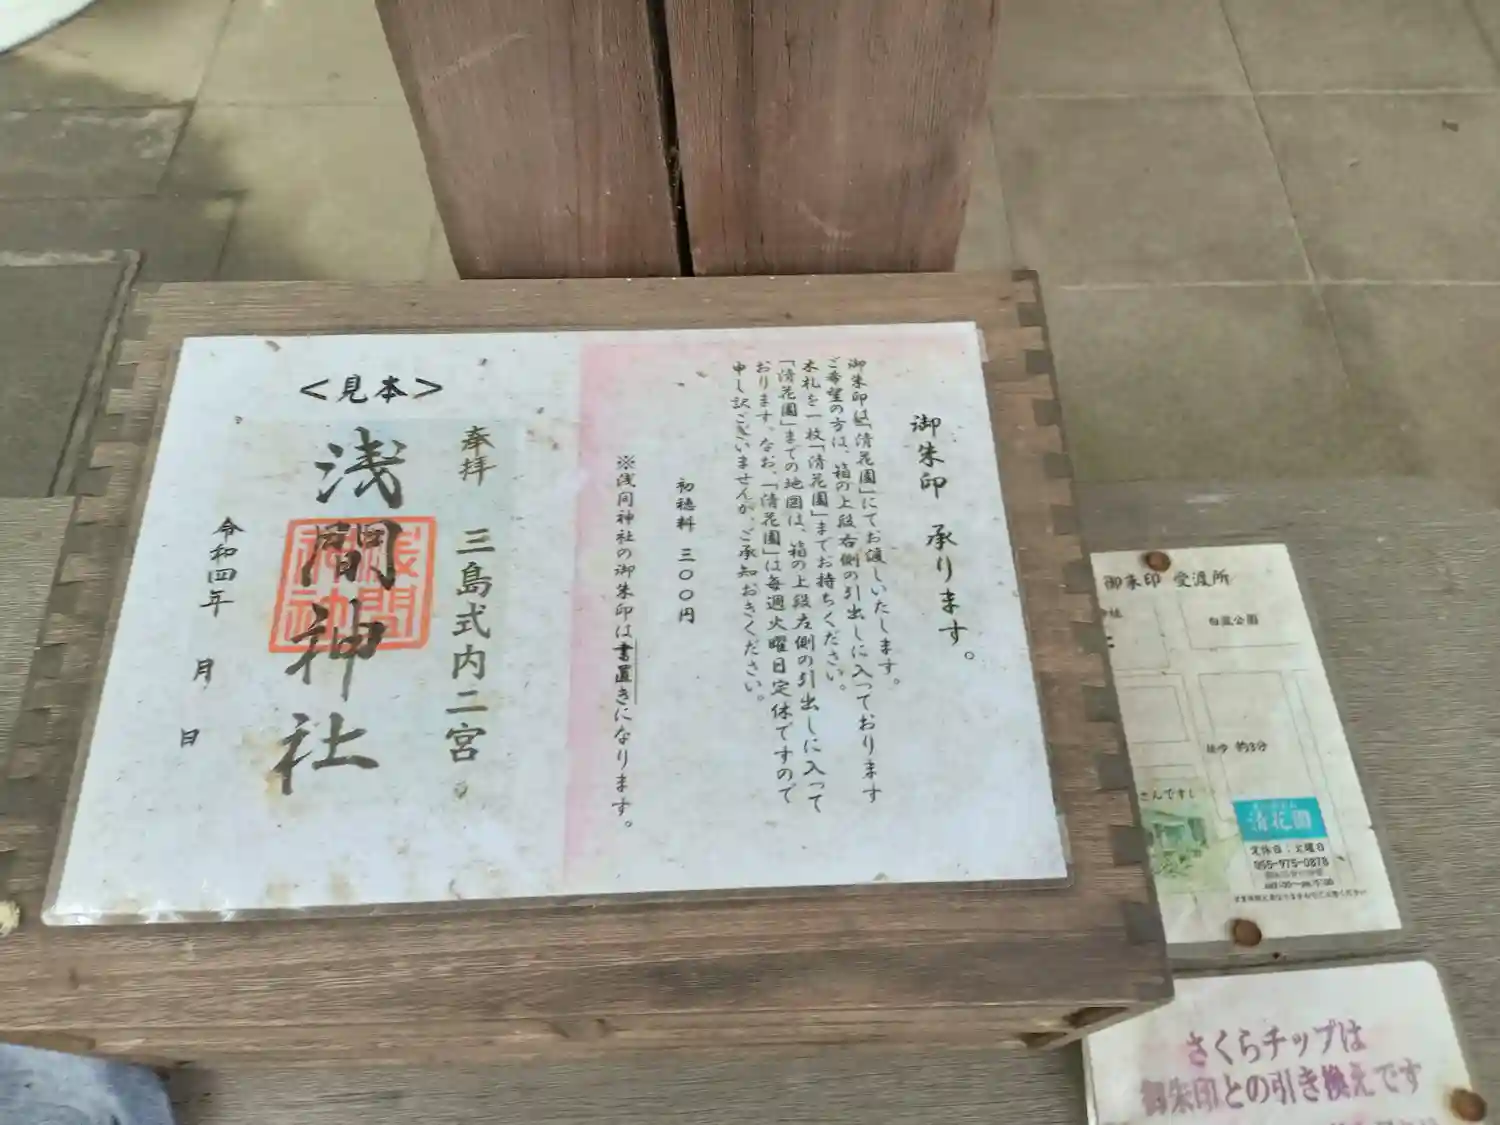 御朱印 承ります。
御朱印は「清花園」にてお渡しいたします。
ご希望の方は、箱の上段右側の引出しに入っております
木札を一枚「清花園」までお持ちください。
「清花園」までの地図は、箱の上段左側の引出しに入って
おります。なお、「清花園」は毎週火曜日定休ですので
申し訳ございませんが、ご承知おきください。
初穂料 三〇〇円
※浅間神社の御朱印は書置きになります。
<見本>
奉拝 三島式内二宮
浅間神社
令和四年 月 日
御朱印 受渡所
白滝公園
徒歩 約3分
清花園
定休日:火曜日
055-975-0878
さくらチップは
御朱印との引き換えです